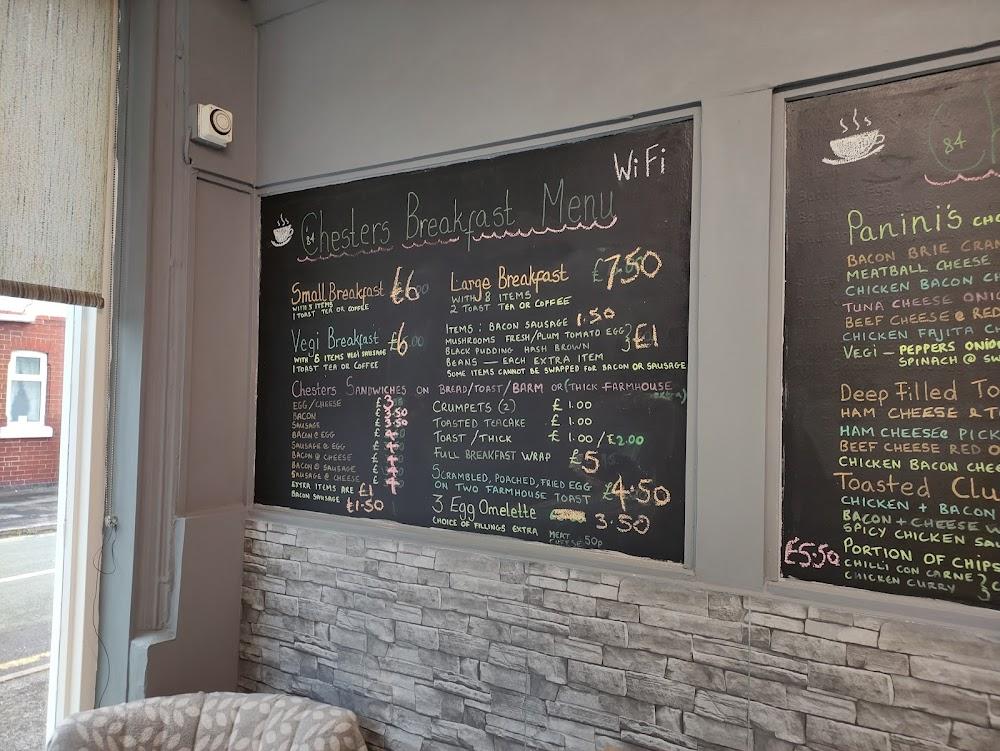 WiFi
84 Chesters Breakfast Menu
Small Breakfast £6
WITH 5 ITEMS
1 TOAST TEA OR COFFEE
Vegi Breakfast £6.00
WITH 5 ITEMS VEGI SAUSAGE
1 TOAST TEA OR COFFEE
Large Breakfast £7.50
WITH 8 ITEMS
2 TOAST TEA OR COFFEE
ITEMS : BACON SAUSAGE 1.50
MUSHROOMS FRESH/PLUM TOMATO EGG
BLACK PUDDING HASH BROWN £1
BEANS — EACH EXTRA ITEM
SOME ITEMS CANNOT BE SWAPPED FOR BACON OR SAUSAGE
Chesters Sandwiches ON BREAD/TOAST/BARM OR (THICK FARMHOUSE
EGG/CHEESE £3
BACON £3.50
SAUSAGE £3.50
BACON @ EGG £4
SAUSAGE @ EGG £4
BACON @ CHEESE £4
BACON @ SAUSAGE £4
SAUSAGE @ CHEESE £4
EXTRA ITEMS ARE £1
BACON SAUSAGE £1.50
CRUMPETS (2) £1.00
TOASTED TEACAKE £1.00
TOAST/THICK £1.00/£2.00
FULL BREAKFAST WRAP £5
SCRAMBLED, POACHED, FRIED EGG
ON TWO FARMHOUSE TOAST £4.50
3 Egg Omelette 3.50
CHOICE OF FILLINGS EXTRA MEAT
CHEESE 50p
84 Ch
Panini's
BACON BRIE CRAN
MEATBALL CHEESE
CHICKEN BACON CH
TUNA CHEESE ONIO
BEEF CHEESE @ RED
CHICKEN FAJITA CH
VEGI — PEPPERS ONION
SPINACH @
Deep Filled To
HAM CHEESE & T
HAM CHEESE @ PICK
BEEF CHEESE RED O
CHICKEN BACON CHEE
Toasted Clu
CHICKEN + BACON
BACON + CHEESE
SPICY CHICKEN SA
£5.50 PORTION OF CHIPS
CHILLI CON CARNE
CHICKEN CURRY